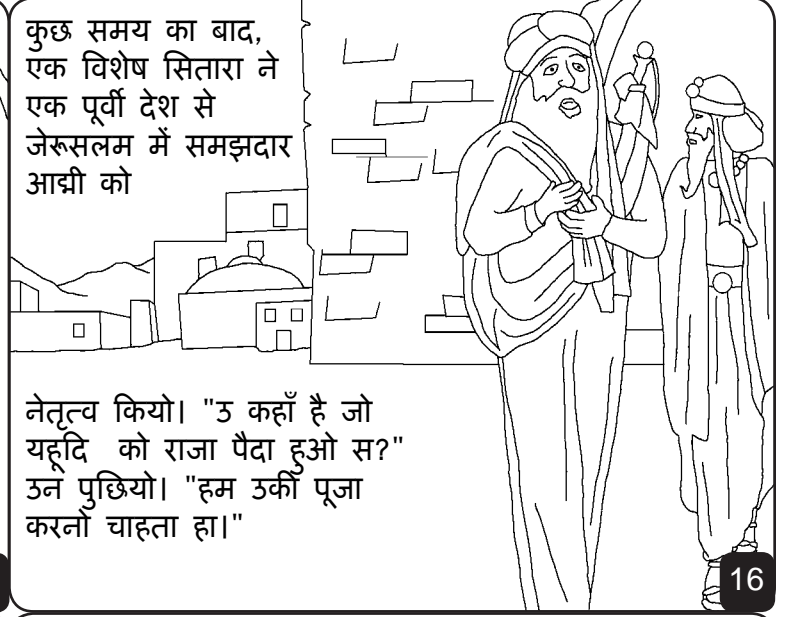 कुछ समय का बाद,
एक विशेष सितारा ने
एक पूर्वी देश से
जेरूसलम में समझदार
आद्मी को
नेतृत्व कियो। "उ कहाँ है जो
यहूदि को राजा पैदा हुओ स?"
उन पुछियो। "हम उकी पूजा
करनो चाहता हा।"
16